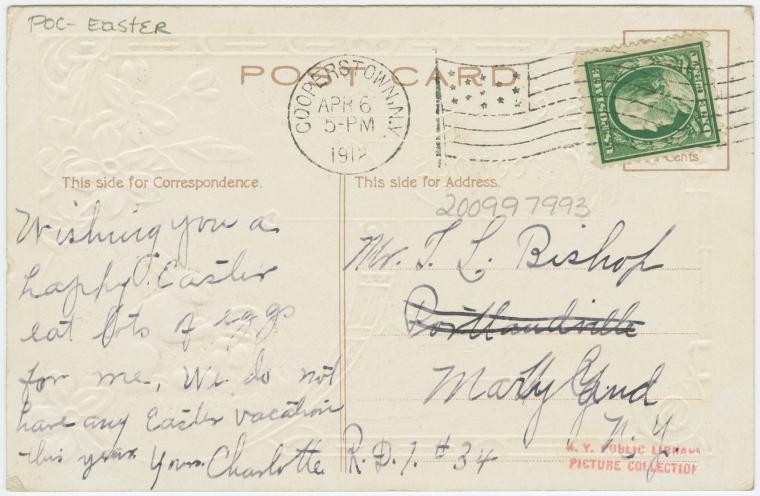 POC- EASTER
POST CARD
COOPERSTOWN, N.Y.
APR 6
5-PM
1912
Cents
This side for Correspondence.
This side for Address.
200997993
Wishing you a
happy Easter
eat lots of eggs
for me, We do not
have any Easter vacation
this year Yours Charlotte
Mr. T. L. Bishop
Portlandville
N. Y.
R.D.1. #34
N. Y. PUBLIC LIBRARY
PICTURE COLLECTION